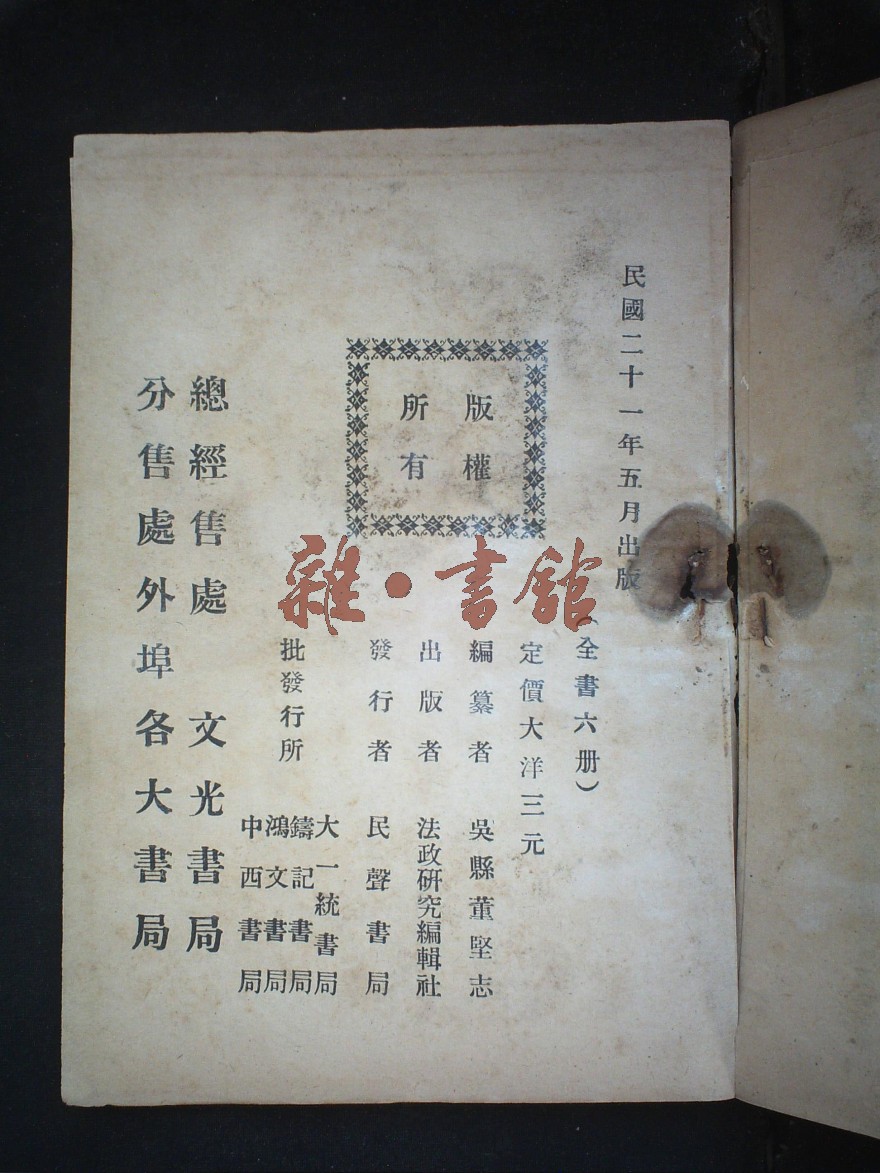 民國二十一年五月出版
(全書六册)
定價大洋三元
版權
所有
編纂者 吳縣董堅志
出版者 法政研究編輯社
發行者 民聲書局
批發行所
大一統書局
鑄記書局
鴻文書局
中西書局
總經售處 文光書局
分售處外埠各大書局
雜·書館